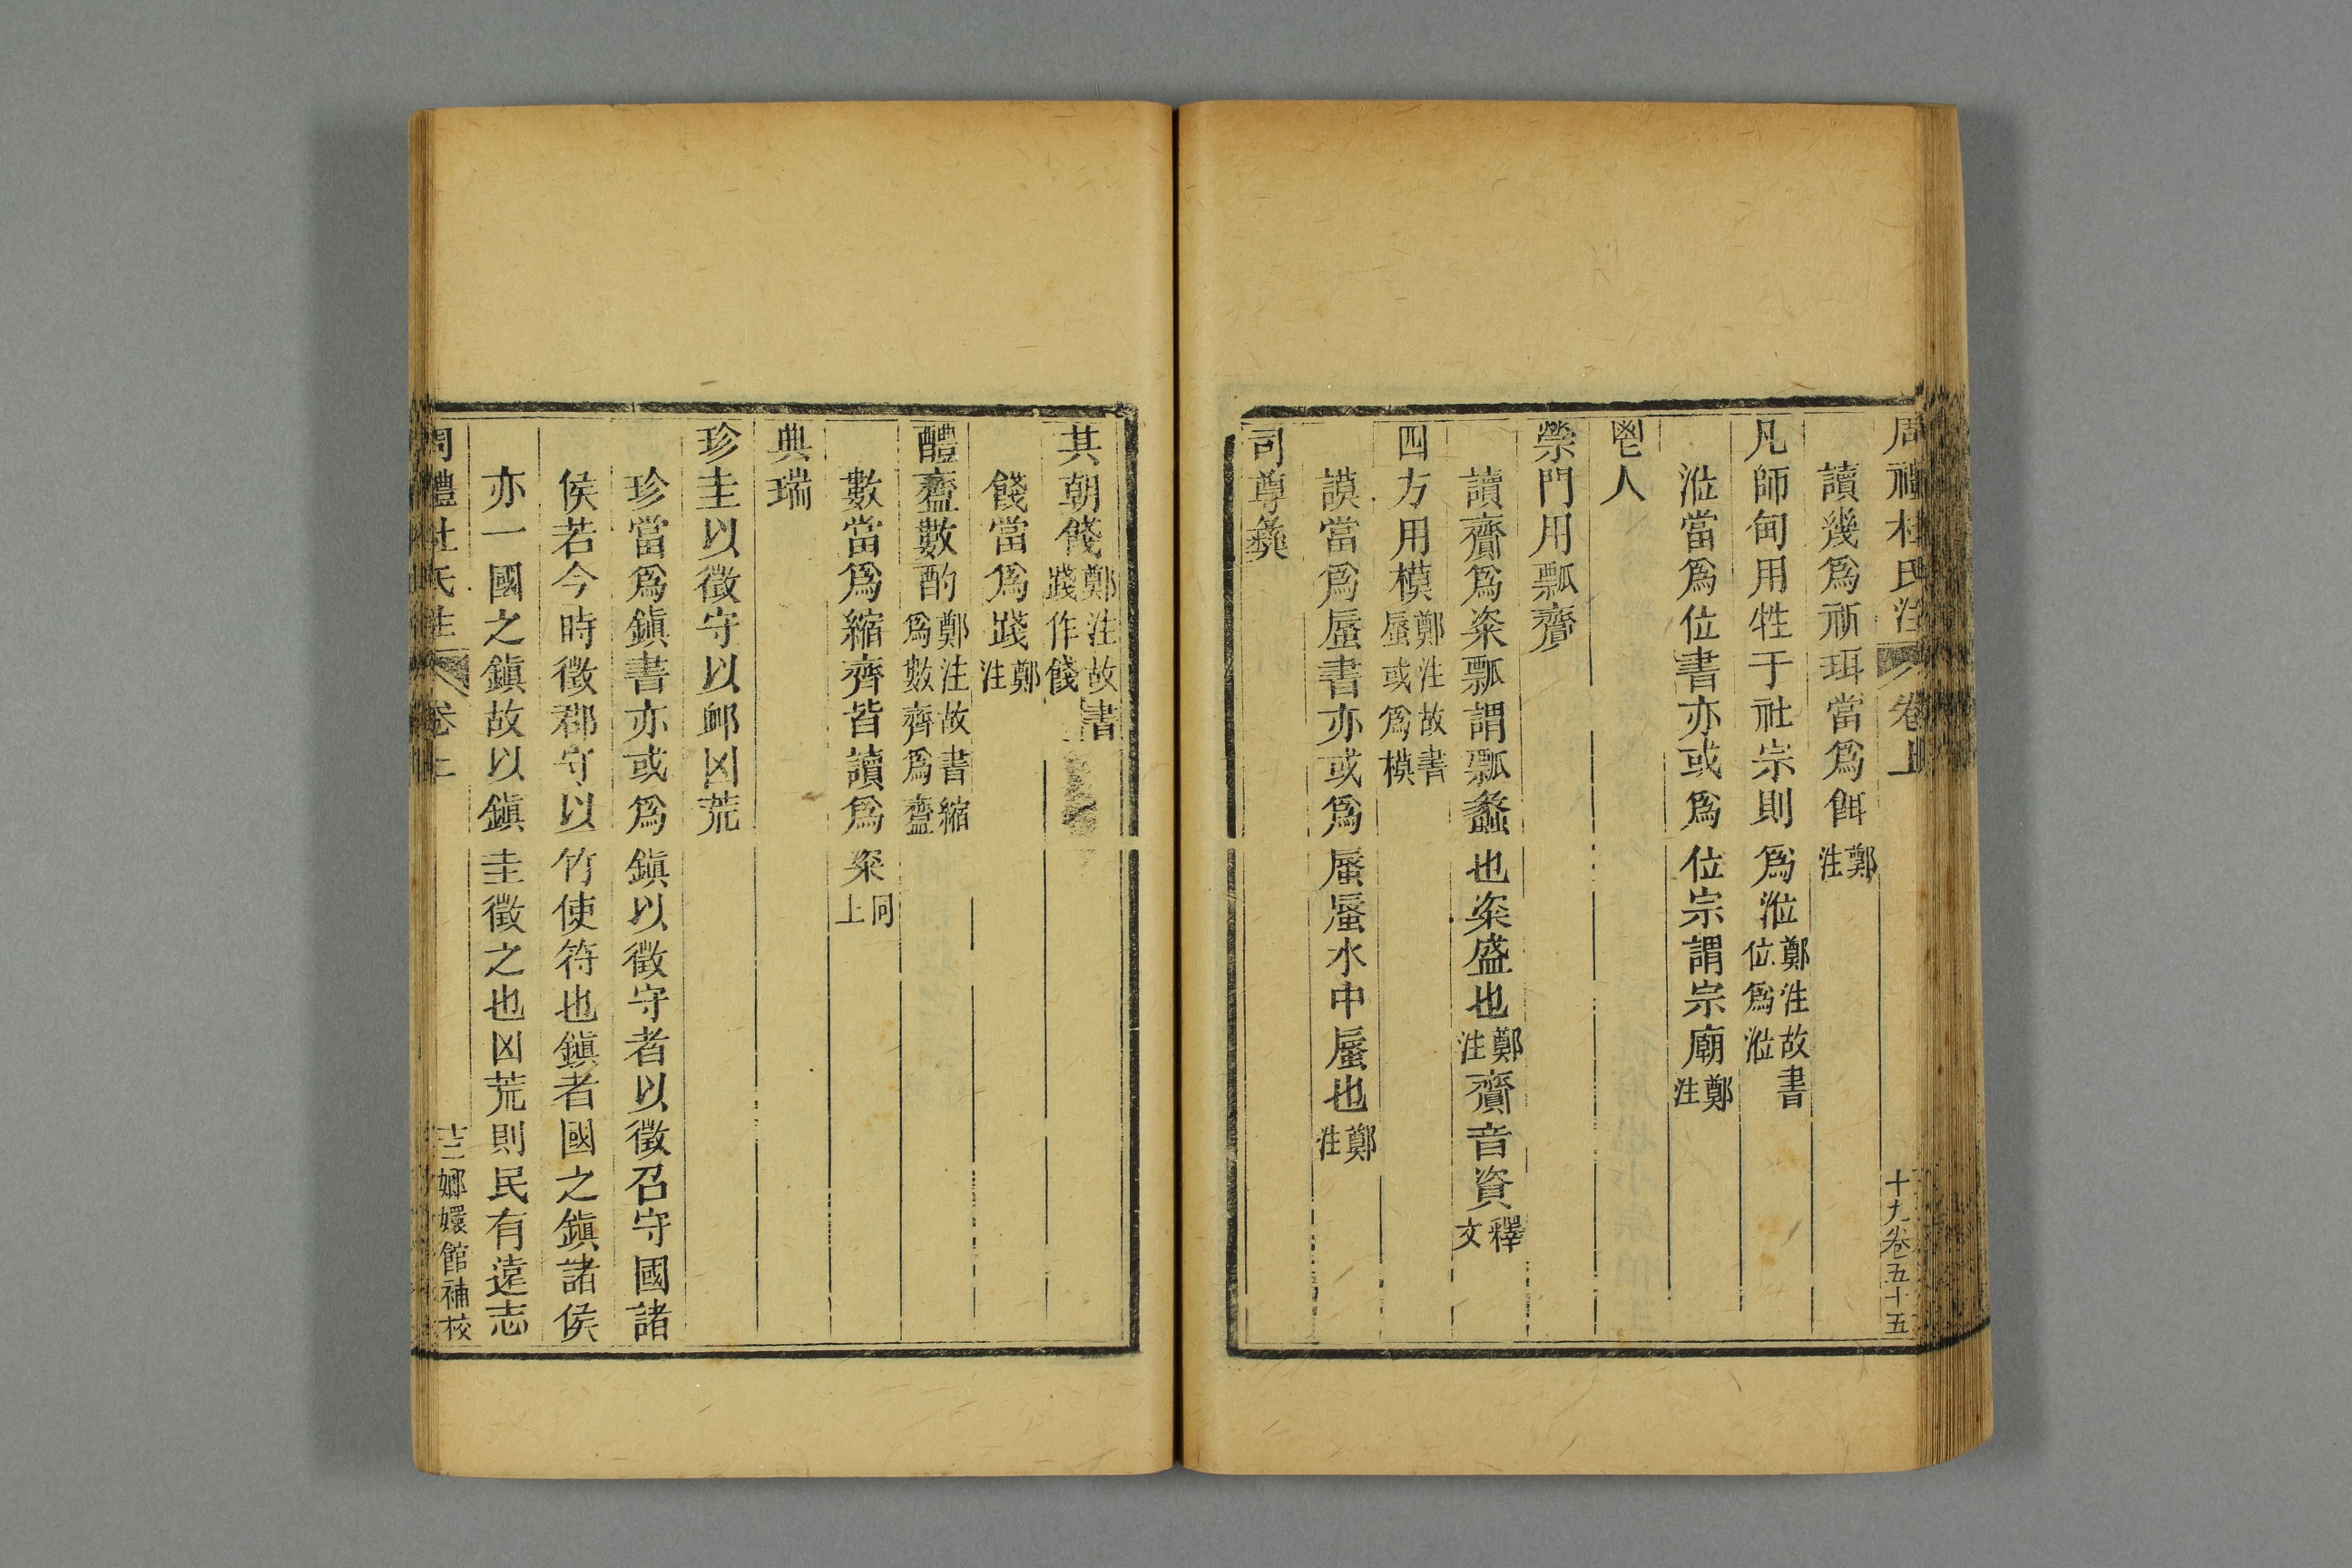 周禮杜氏注 卷上 十九卷五十五
讀幾爲祈珥當爲餌鄭注
凡師甸用牲于社宗則爲涖鄭注故書位爲涖
涖當爲位書亦或爲位宗謂宗廟鄭注
鬯人
禜門用瓢齎
讀齎爲粢瓢謂瓢蠡也粢盛也鄭注齎音資釋文
四方用模鄭注故書蜃或爲模
謨當爲蜃書亦或爲蜃蜃水中蜃也鄭注
司尊彝
其朝餞鄭注故書踐作餞
餞當爲踐鄭注
醴齍數酌鄭注故書縮爲數齊爲齍
數當爲縮齊皆讀爲粢同上
典瑞
珍圭以徵守以卹凶荒
珍當爲鎭書亦或爲鎭以徵守者以徵召守國諸
侯若今時徵郡守以竹使符也鎭者國之鎭諸侯
亦一國之鎭故以鎭圭徵之也凶荒則民有遠志
周禮杜氏注 卷上 十三 嫏嬛館補校